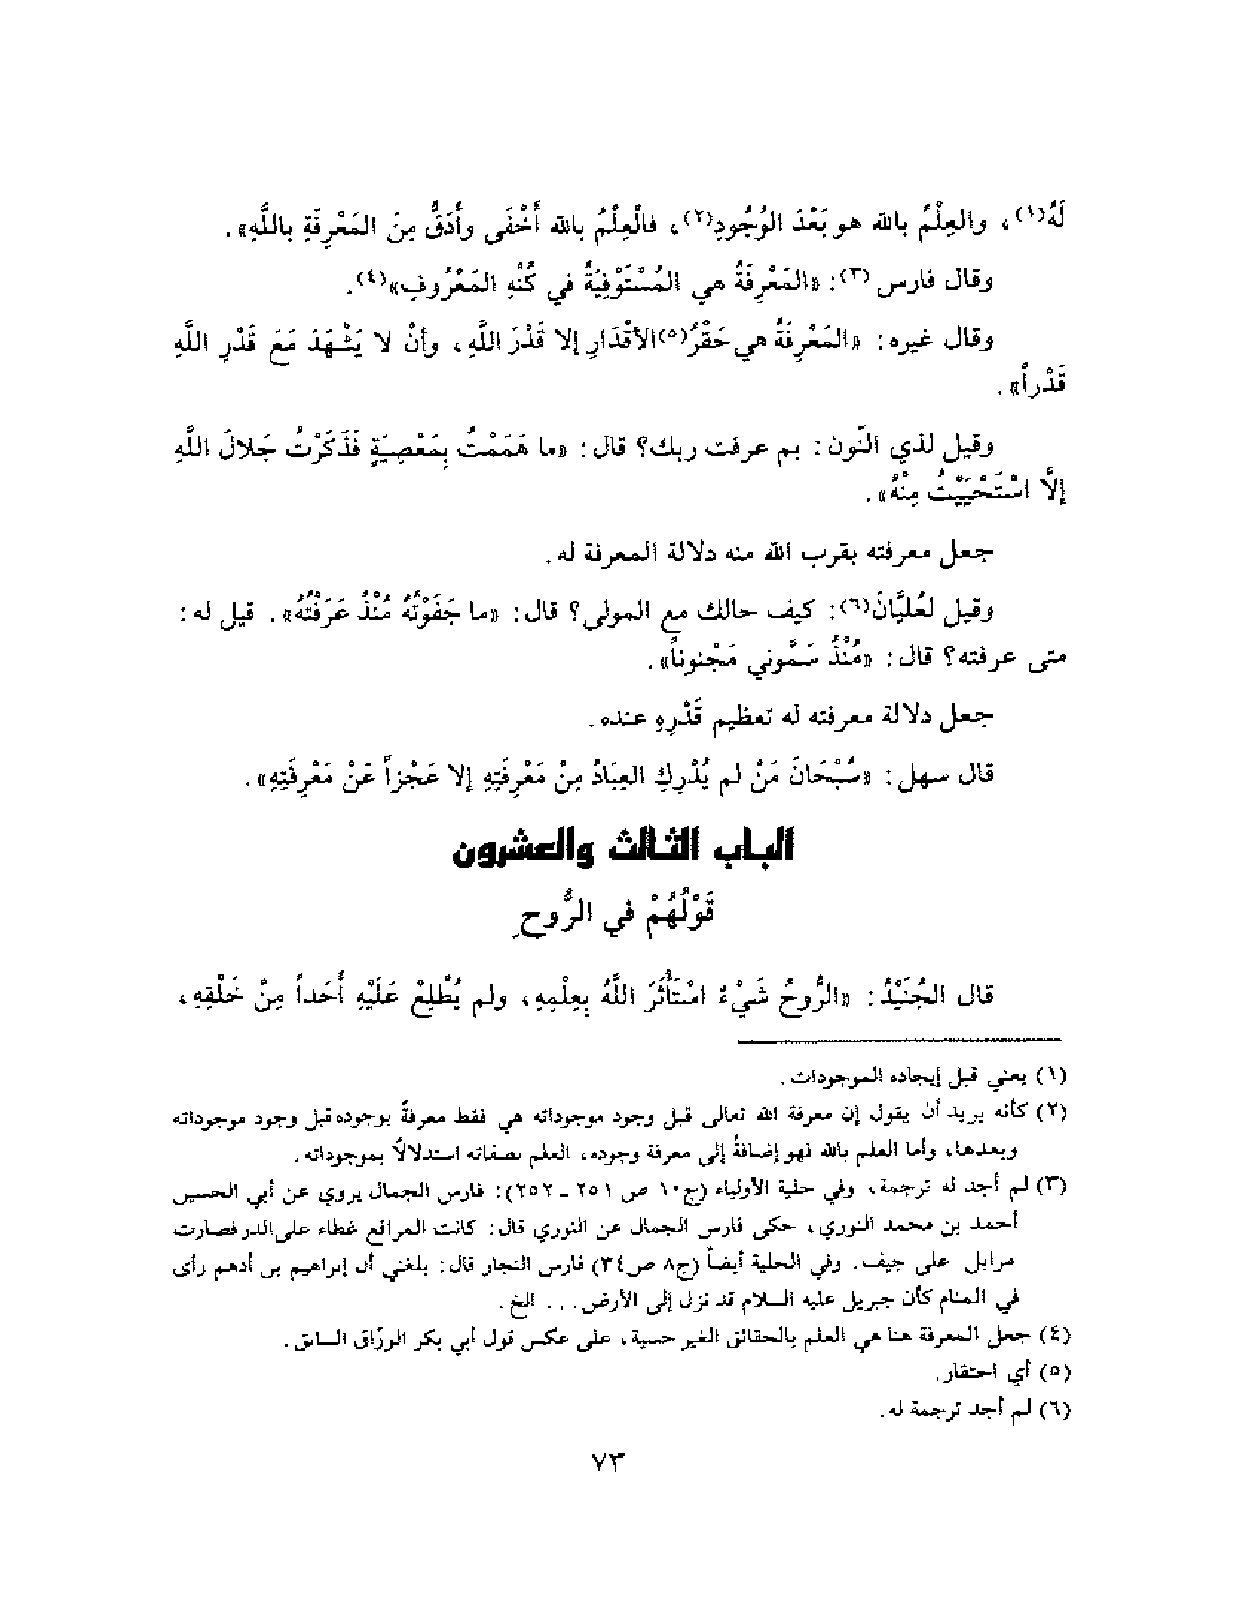 لَهُ(١)، والعِلْمُ بالله هو بَعْدَ الوُجُودِ(٢)، فالْعِلْمُ بالله أَخْفَى وأَدَقُّ مِنَ المَعْرِفَةِ باللَّهِ».
وقال فارس(٣): «المَعْرِفَةُ هي المُسْتَوْفِيَةُ في كُنْهِ المَعْرُوفِ»(٤).
وقال غيره: «المَعْرِفَةُ هي حَقْرُ(٥)الأقْدَارِ إلا قَدْرَ اللَّهِ، وأنْ لا يَشْهَدَ مَعَ قَدْرِ اللَّهِ
قَدْراً».
وقيل لذي النّون: بم عرفت ربك؟ قال: «ما هَمَمْتُ بِمَعْصِيَةٍ فَذَكَرْتُ جَلالَ اللَّهِ
إلاَّ اسْتَحْيَيْتُ مِنْهُ».
جعل معرفته بقرب الله منه دلالة المعرفة له.
وقيل لعُليَّانَ(٦): كيف حالك مع المولى؟ قال: «ما جَفَوْتُهُ مُنْذُ عَرَفْتُهُ». قيل له:
متى عرفته؟ قال: «مُنْذُ سَمُّوني مَجْنوناً».
جعل دلالة معرفته له تعظيم قَدْرِهِ عنده.
قال سهل: «سُبْحَانَ مَنْ لم يُدْرِكِ العِبَادُ مِنْ مَعْرِفَتِهِ إلا عَجْزاً عَنْ مَعْرِفَتِهِ».
الباب الثالث والعشرون
قَوْلُهُمْ في الرُّوحِ
قال الجُنَيْدُ: «الرُّوحُ شَيْءٌ اسْتَأْثَرَ اللَّهُ بِعِلْمِهِ، ولم يُطْلِعْ عَلَيْهِ أَحَداً مِنْ خَلْقِهِ،
(١) يعني قبل إيجاده الموجودات.
(٢) كأنه يريد أن يقول إن معرفة الله تعالى قبل وجود موجوداته هي فقط معرفةٌ بوجوده قبل وجود موجوداته
وبعدها، وأما العلم بالله فهو إضافةُ إلى معرفة وجوده، العلم بصفاته استدلالاً بموجوداته.
(٣) لم أجد له ترجمة، وفي حلية الأولياء (ج١٠ ص ٢٥١ - ٢٥٢): فارس الجمال يروي عن أبي الحسين
أحمد بن محمد النوري، حكى فارس الجمال عن النوري قال: كانت المراقع غطاء على الدر فصارت
مزابل على جيف. وفي الحلية أيضاً (ج٨ ص٣٤) فارس النجار قال: بلغني أن إبراهيم بن أدهم رأى
في المنام كأن جبريل عليه السلام قد نزل إلى الأرض... الخ.
(٤) جعل المعرفة هنا هي العلم بالحقائق الغير حسية، على عكس قول أبي بكر الورّاق السابق.
(٥) أي احتقار.
(٦) لم أجد ترجمة له.
٧٣